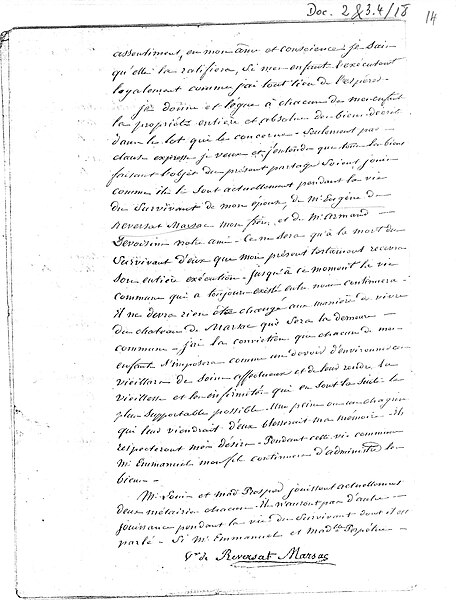 Doc. 2 & 3.4/18
14
assentiment, en mon âme et conscience je sais
qu'elle la ratifiera, si mes enfants l'exécutent
loyalement comme j'ai tout lieu de l'espérer.
Je donne et lègue à chacun de mes enfants
la propriété entière et absolue des biens décrits
dans le lot qui le concerne. Seulement par
clause expresse je veux et j'entends que tous les biens
faisant l'objet du présent partage soient jouis
comme ils le sont actuellement pendant la vie
du survivant de mon épouse, de Mr Eugène de
Reversat Marsac mon frère, et de Mr Armand
notre ami. Ce ne sera qu'à la mort du
survivant d'eux que mon présent testament recevra
son entière exécution. Jusqu'à ce moment la vie
commune qui a toujours existé entre nous continuera.
Il ne devra rien être changé aux manières de vivre
du chateau de Marsac qui sera la demeure
commune. J'ai la conviction que chacun de mes
enfants s'imposera comme un devoir d'environner ces
vieillards de soins affectueux et de leur rendre la
vieillesse et les infirmités qui en sont la suite le
plus supportable possible. Une peine ou un chagrin
qui leur viendrait d'eux blesserait ma mémoire. Ils
respecteront mon désir. Pendant cette vie commune
Mr Emmanuel mon fils continuera d'administrer les
biens.
Mr Louis et Mad. jouissent actuellement
deux métairies chacun. Ils n'auront pas d'autre
jouissance pendant la vie du survivant dont il est
parlé. Si Mr Emmanuel et Mad.lle Perpétue
Vte de Reversat Marsac